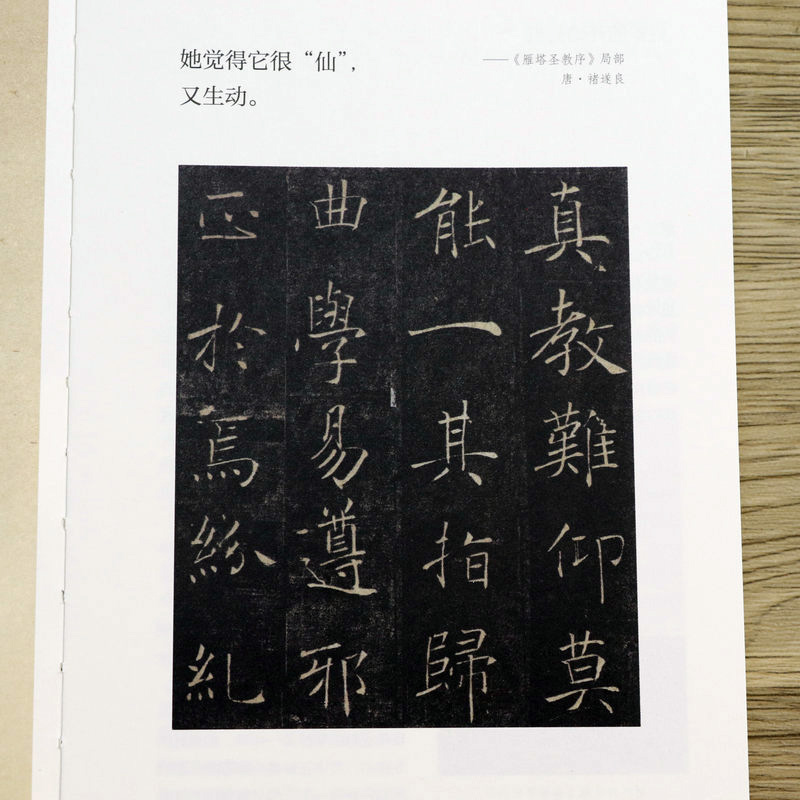 她觉得它很“仙”，
又生动。
——《雁塔圣教序》局部
唐·褚遂良
真教難仰莫
能一其指歸
曲學易遵邪
正於焉紛糺